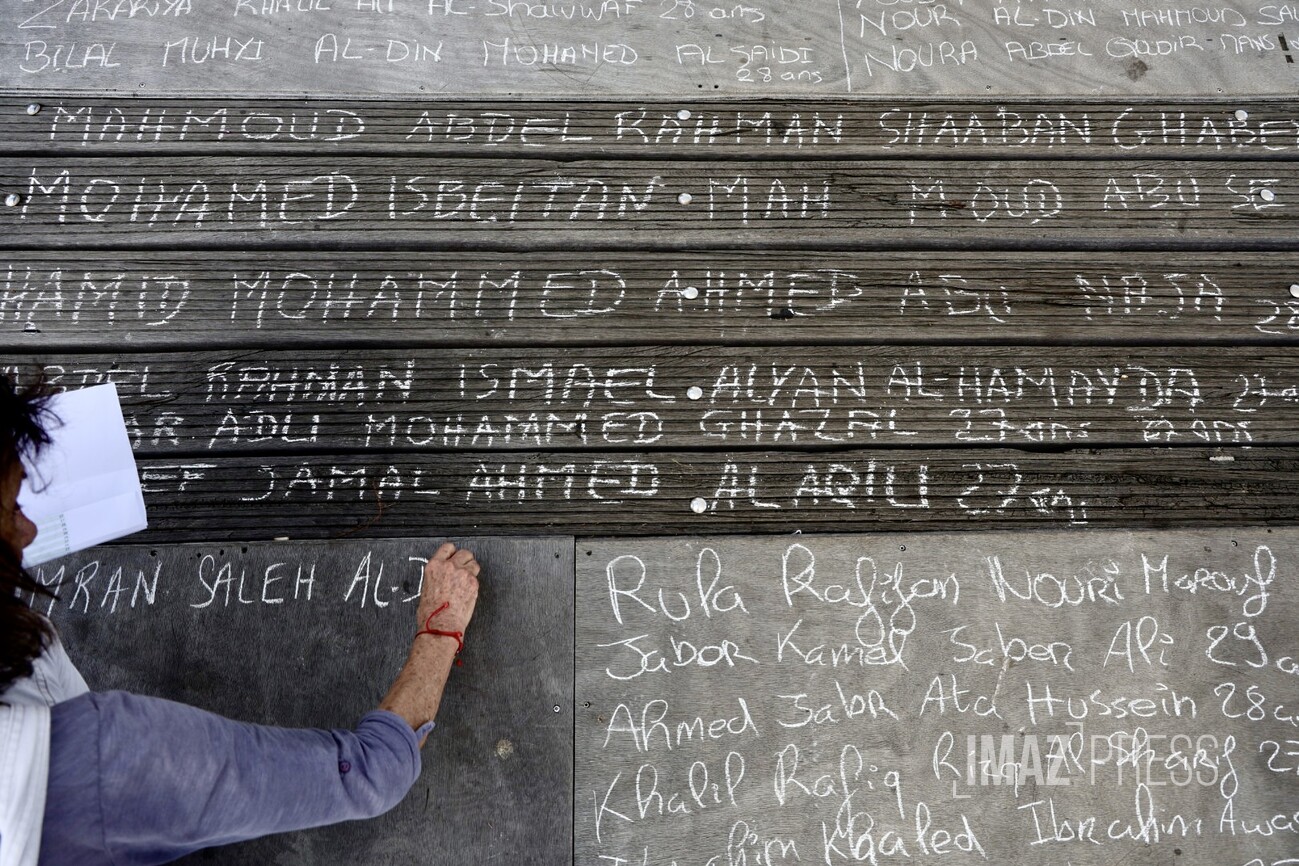 ZAKARIYA KHALIL ALI AL-SHAWWAF 28 ans
BILAL MUHYI AL-DIN MOHAMED AL SAIDI
28 ans
NOUR AL-DIN MAHMOUD
NOURA ABDEL QODIR
MAHMOUD ABDEL RAHMAN SHAABAN GHABE
MOHAMED ISBEITAN MAH MOUD ABU SE
HAMID MOHAMMED AHMED ABU NAJA
28
RAHMAN ISMAEL ALYAN AL-HAMAYDA
AR ADLI MOHAMMED GHAZAL 27 ans 27 ans
EF JAMAL AHMED AL AQILI 27 an
MRAN SALEH AL-D
Rula Nouri Marouf
Jabor Kamel Saber Ali 29 a
Ahmed Jabr Ata Hussein 28 a
Khalil Rafiq Rizq Al Sharif 27
Khaled Ibrahim Awa
IMAZ PRESS